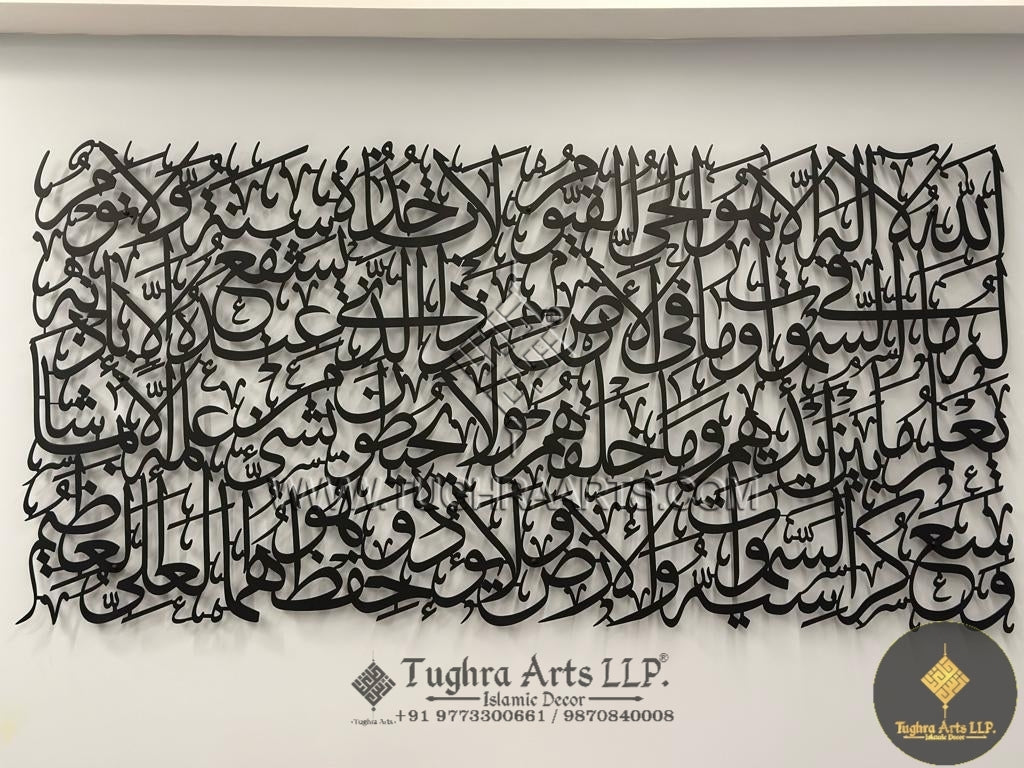 الله لا اله الا هو الحي القيوم لا تاخذه سنة ولا نوم
له ما في السموات وما في الارض من ذا الذي يشفع عنده الا باذنه
يعلم ما بين ايديهم وما خلفهم ولا يحيطون بشئ من علمه الا بما شاء
وسع كرسيه السموات والارض ولا يؤده حفظهما وهو العلي العظيم
WWW.TUGHRAARTS.COM
Tughra Arts LLP.®
Islamic Decor
Tughra Arts
+91 9773300661 / 9870840008
Tughra Arts LLP.
Islamic Decor